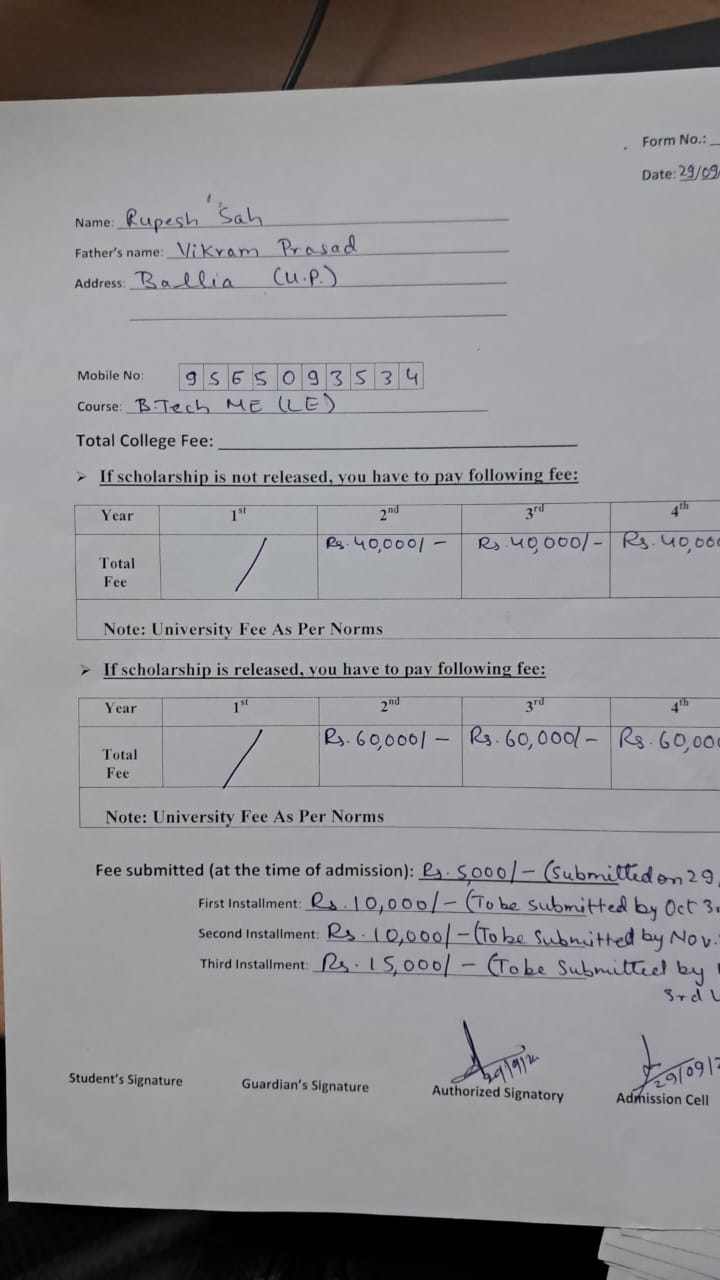 Form No.:
Date: 29/09
Name: Rupesh Sah
Father's name: Vikram Prasad
Address: Ballia (U.P.)
Mobile No: 9565093534
Course: B.Tech ME (LE)
Total College Fee:
➢ If scholarship is not released, you have to pay following fee:
Year 1st 2nd 3rd 4th
Total Fee / Rs. 40,000/- Rs. 40,000/- Rs. 40,000
Note: University Fee As Per Norms
➢ If scholarship is released, you have to pay following fee:
Year 1st 2nd 3rd 4th
Total Fee / Rs. 60,000/- Rs. 60,000/- Rs. 60,000
Note: University Fee As Per Norms
Fee submitted (at the time of admission): Rs. 5,000/- (Submitted on 29
First Installment: Rs. 10,000/- (To be submitted by Oct
Second Installment: Rs. 10,000/- (To be Submitted by Nov.
Third Installment: Rs. 15,000/- (To be Submitted by
3rd
29/09/2
Student's Signature Guardian's Signature Authorized Signatory Admission Cell